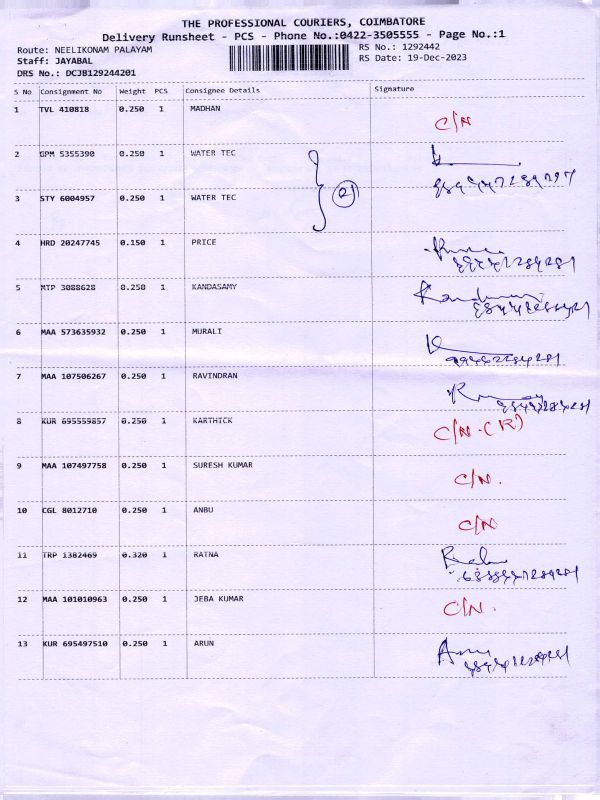 THE PROFESSIONAL COURIERS, COIMBATORE
Delivery Runsheet - PCS - Phone No.:0422-3505555 - Page No.:1
Route: NEELIKONAM PALAYAM RS No.: 1292442
Staff: JAYABAL RS Date: 19-Dec-2023
DRS No.: DCJB129244201
S No Consignment No Weight PCS Consignee Details Signature
1 TVL 410818 0.250 1 MADHAN C/N
2 GPM 5355390 0.250 1 WATER TEC
3 STY 6004957 0.250 1 WATER TEC
4 HRD 20247745 0.150 1 PRICE
5 MTP 3088628 0.250 1 KANDASAMY
6 MAA 573635932 0.250 1 MURALI
7 MAA 107506267 0.250 1 RAVINDRAN
8 KUR 695559857 0.250 1 KARTHICK C/N-(R)
9 MAA 107497758 0.250 1 SURESH KUMAR C/N.
10 CGL 8012710 0.250 1 ANBU C/N
11 TRP 1382469 0.320 1 RATNA
12 MAA 101010963 0.250 1 JEBA KUMAR C/N.
13 KUR 695497510 0.250 1 ARUN